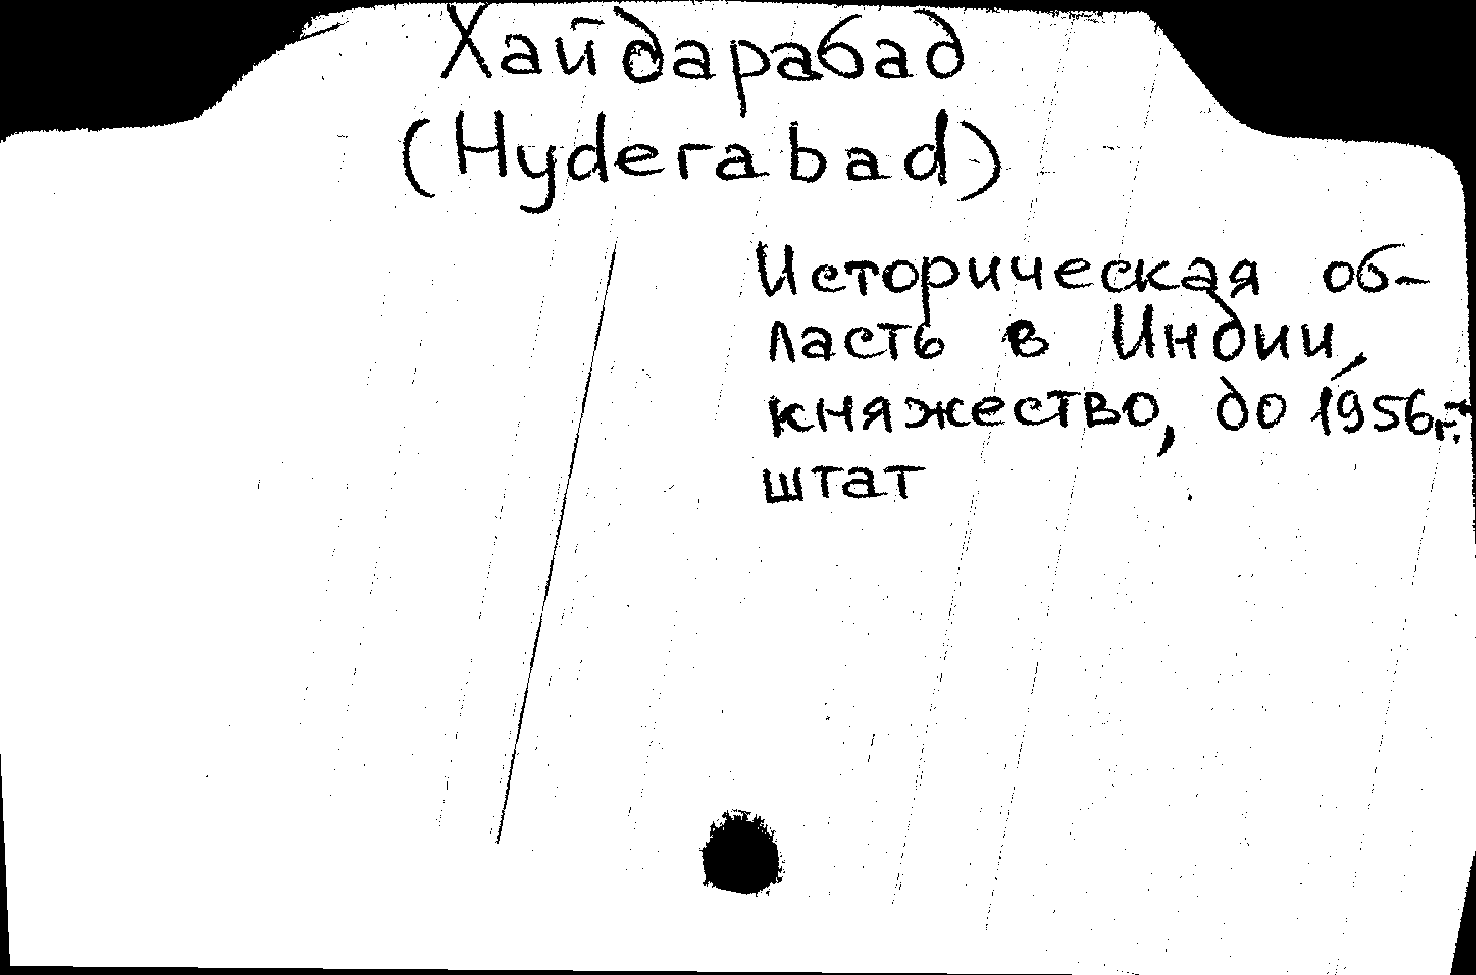 Хайдарабад
(Hyderabad)
Историческая об-
ласть в Индии,
княжество, до 1956г.-
штат